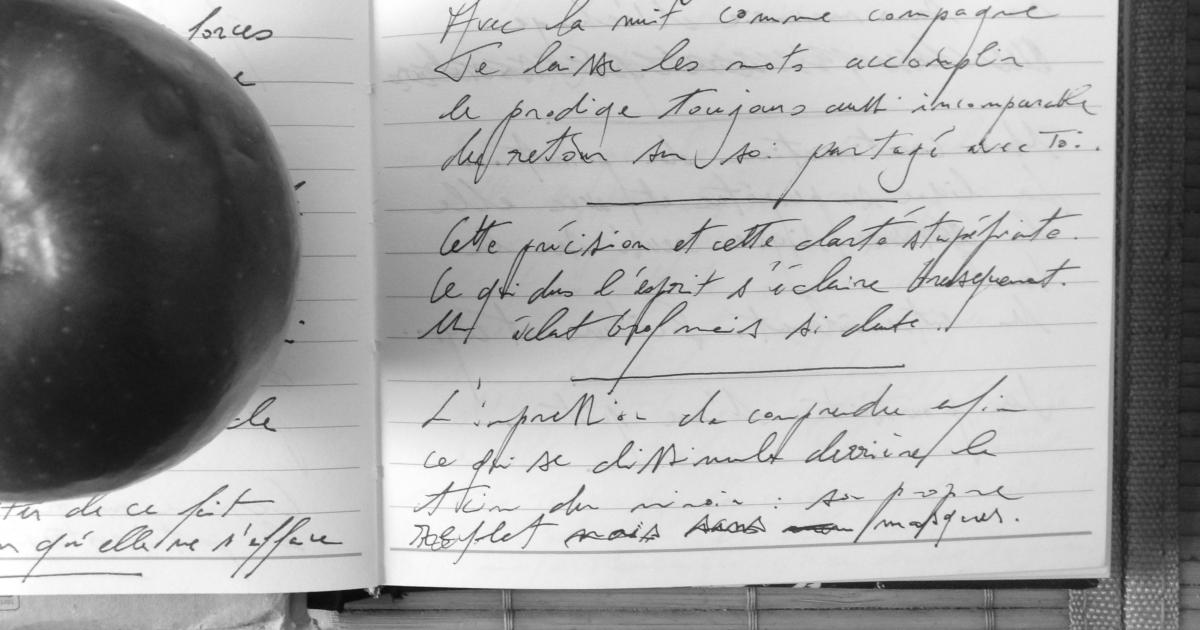 forces
de
ter de ce fait
qu'elle ne s'efface
Avec la nuit comme compagne
Je laisse les mots accomplir
le prodige toujours aussi incomparable
du retour sur soi partagé avec Toi.
Cette précision et cette clarté stupéfiante.
Ce qui dans l'esprit s'éclaire brusquement.
Un éclat bref mais si
L'impression de comprendre enfin
ce qui se dissimule derrière le
du miroir : son propre
reflet mais sans masques.